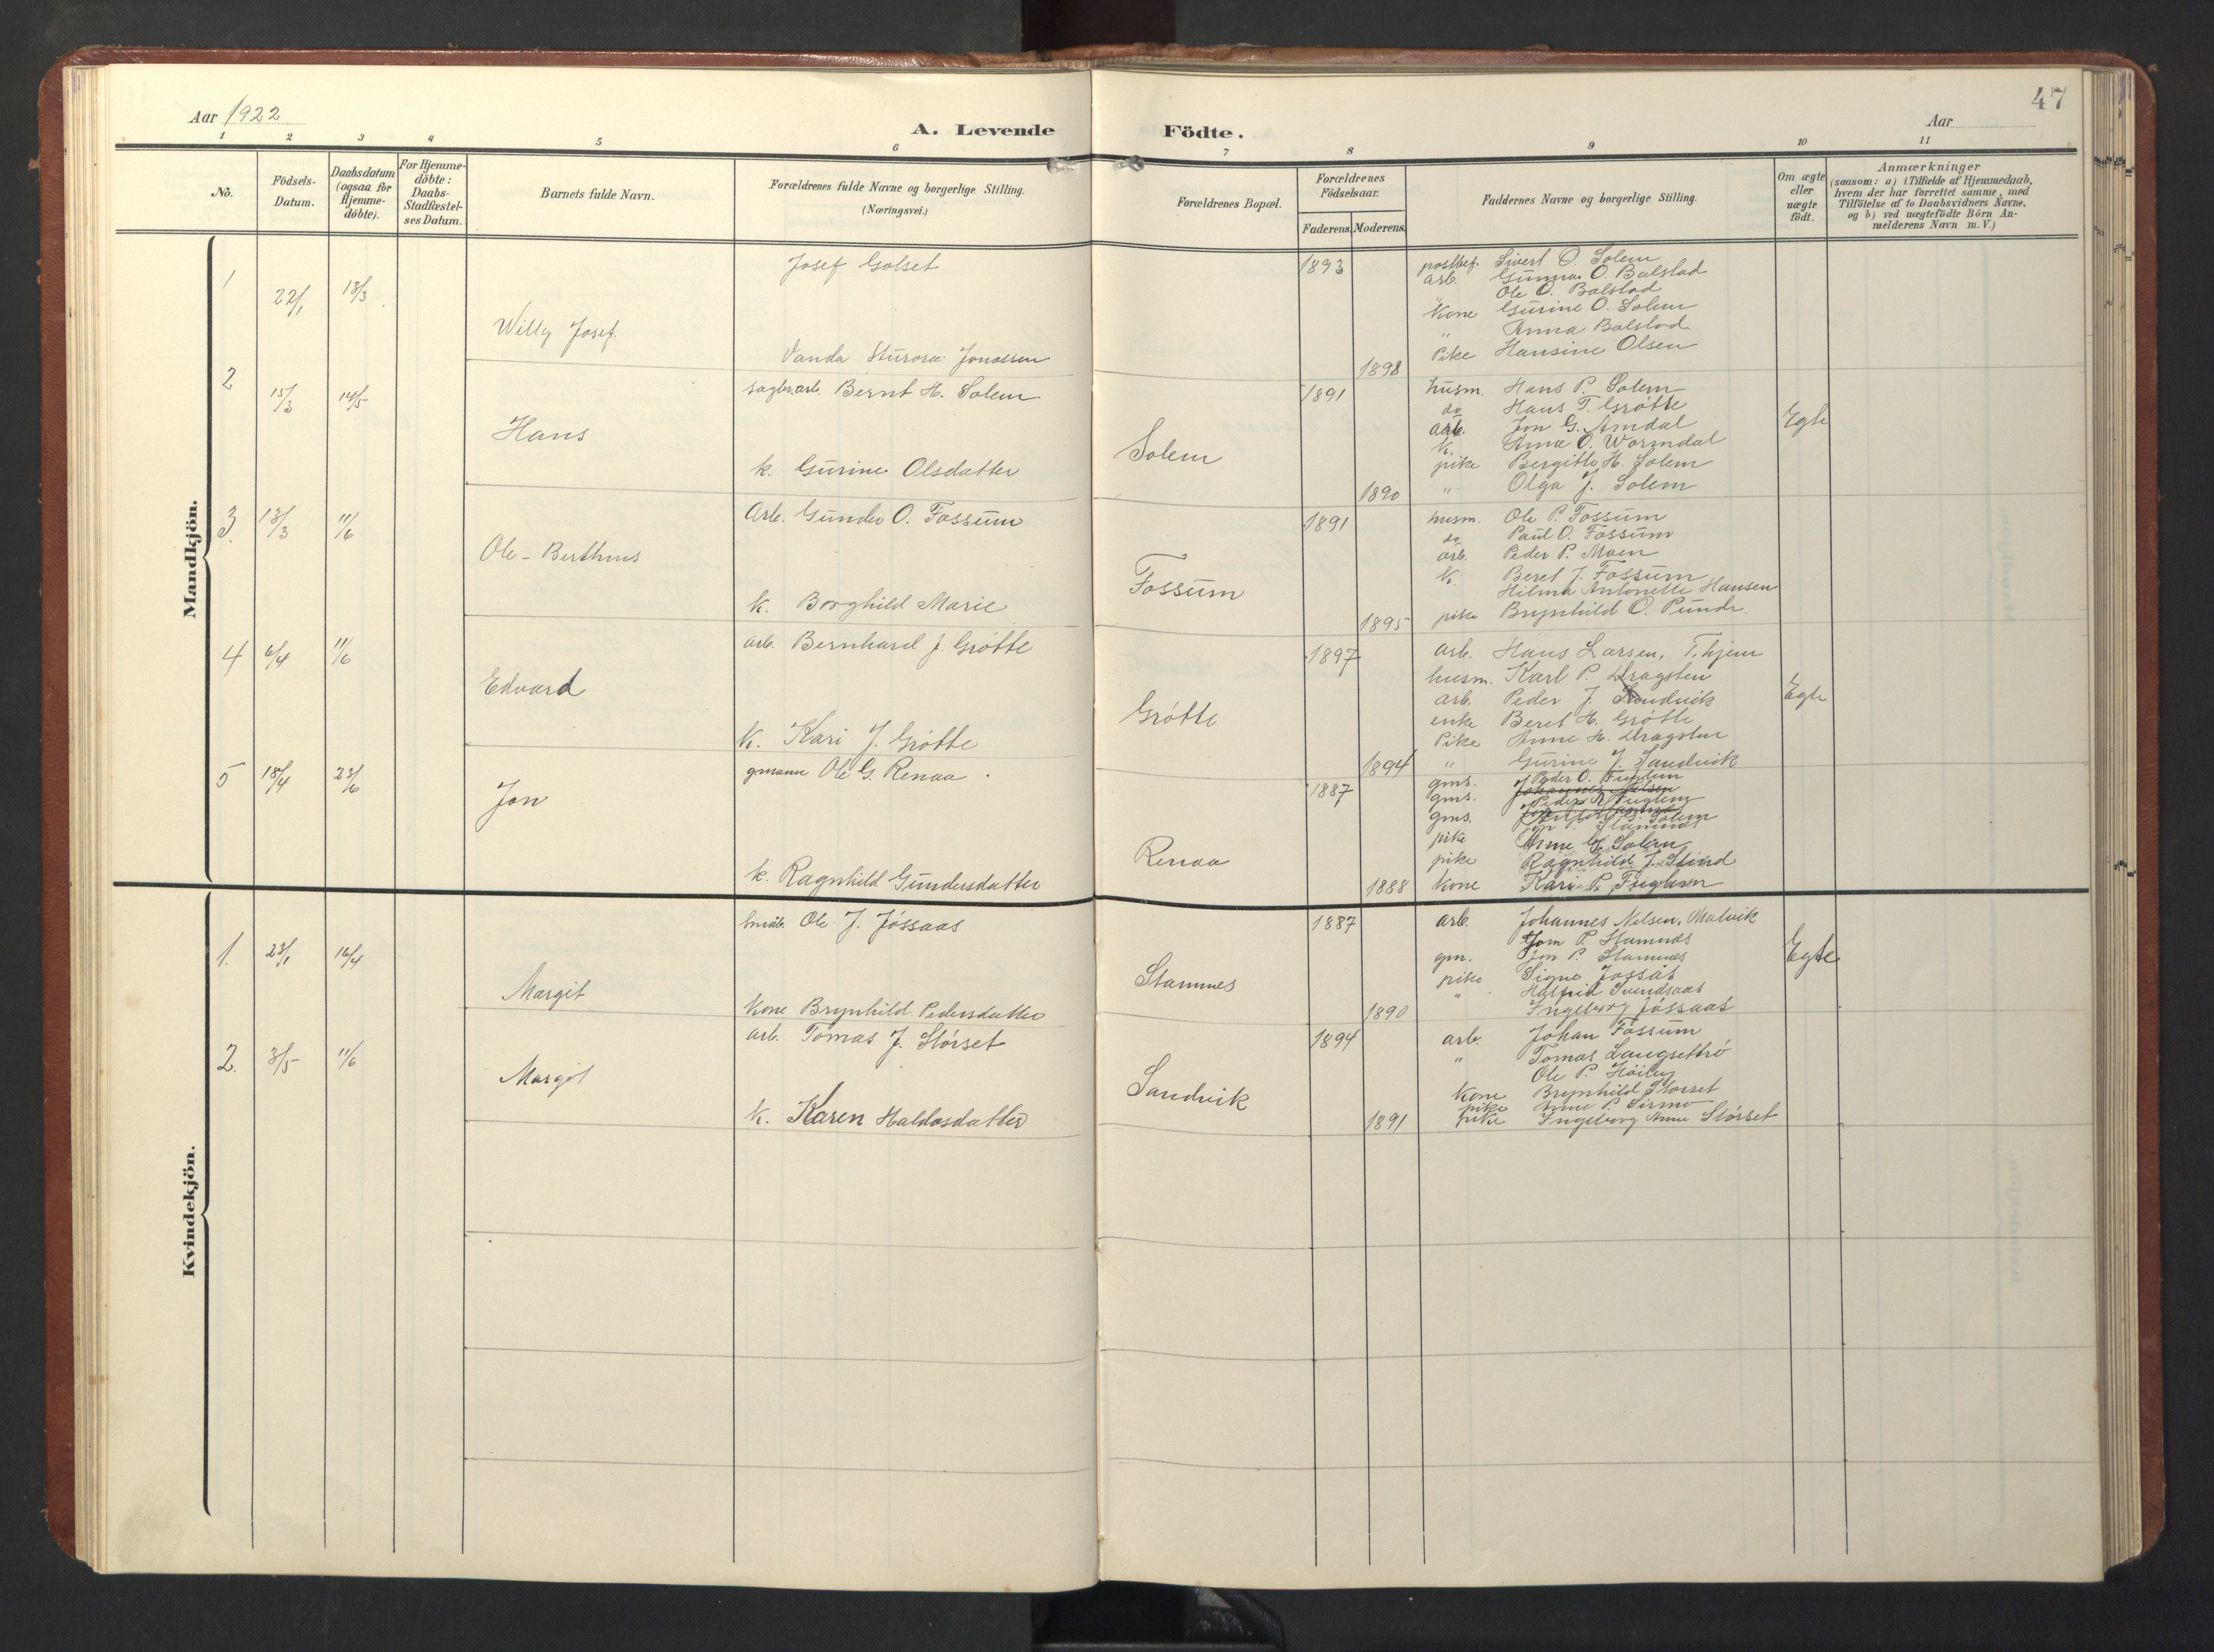 47
Aar 1922
A. Levende Födte.
Aar
1 2 3 4 5 6 7 8 9 10 11
No.
Födsels-Datum.
Daabsdatum (ogsaa for Hjemme-döbte).
For Hjemme-döbte: Daabs-Stadfæstel-ses Datum.
Barnets fulde Navn.
Forældrenes fulde Navne og borgerlige Stilling.
(Næringsvei.)
Forældrenes Bopæl.
Forældrenes Födselsaar.
Faderens. Moderens.
Faddernes Navne og borgerlige Stilling.
Om ægte eller uægte födt.
Anmærkninger
(saasom: a) i Tilfælde af Hjemmedaab,
hvem der har forrettet samme, med
Tilföielse af to Daabsvidners Navne,
og b) ved uægtefödte Börn An-
melderens Navn m. V.)
Mandkjön.
1 22/1 13/3
Willy Josef.
Josef Golset
Vanda Jonassen
1893
1898
Sivert O. Solem
arb. Gunnar O. Balstad
Ole O. Balstad
Kone Gurine O. Solem
" Anna Balstad
Pike Hansine Olsen
2 15/3 14/5
Hans
Bernt H. Solem
k. Gurine Olsdatter
Solem
1891
1890
husm. Hans P. Solem
do Hans T. Grötte
arb. Jon G. Amdal
k. Anna O. Wormdal
pike Bergitte H. Solem
" Olga J. Solem
Egte
3. 13/3 11/6
Ole - Berthinus
Arb. Gunder O. Fossum
k. Borghild Marie
Fossum
1891
1895
husm. Ole P. Fossum
do Paul O. Fossum
arb. Peder P. Moen
k. Beret J. Fossum
Hilma Antonette Hansen
pike Brynhild O.
4 6/4 11/6
Edvard
arb. Bernhard J. Grötte
k. Kari J. Grötte
Grötte
1897
1894
arb. Hans Larsen, T.hjem
husm. Karl P. Dragsten
arb. Peder J. Sandvik
enke Beret H. Grötte
Pike Anne H. Dragsten
" Gurine J. Sandvik
Egte
5 18/4 23/6
Jon
gmann Ole G. Renaa
k. Ragnhild Gundersdatter
Renaa
1887
1888
gms. Peder O. Fuglem
Johannes Nilsen
gms. Peder Fuglem
gms. Solem
Stamnes
pike Anne G. Solem
pike Ragnhild J.
Kone Kari P. Fuglem
Kvindekjön.
1. 23/1 16/4
Margit
Småb. Ole J. Jössaas
Kone Brynhild Pedersdatter
Stamnes
1887
1890
arb. Johannes Nilsen, Malvik
Jon P. Stamnes
gm. Jon P. Stamnes
pike Signe Jossås
" Svendsaas
Ingeborg Jössaas
Egte
2. 3/5 11/6
Margot
arb. Tomas J. Störset
k. Karen Haldosdatter
Sandvik
1894
1891
arb. Johan Fossum
" Tomas Langsettrö
Ole P. Höiby
Kone Brynhild Storset
pike Anne P. Sirmo
pike Ingeborg Anna Störset